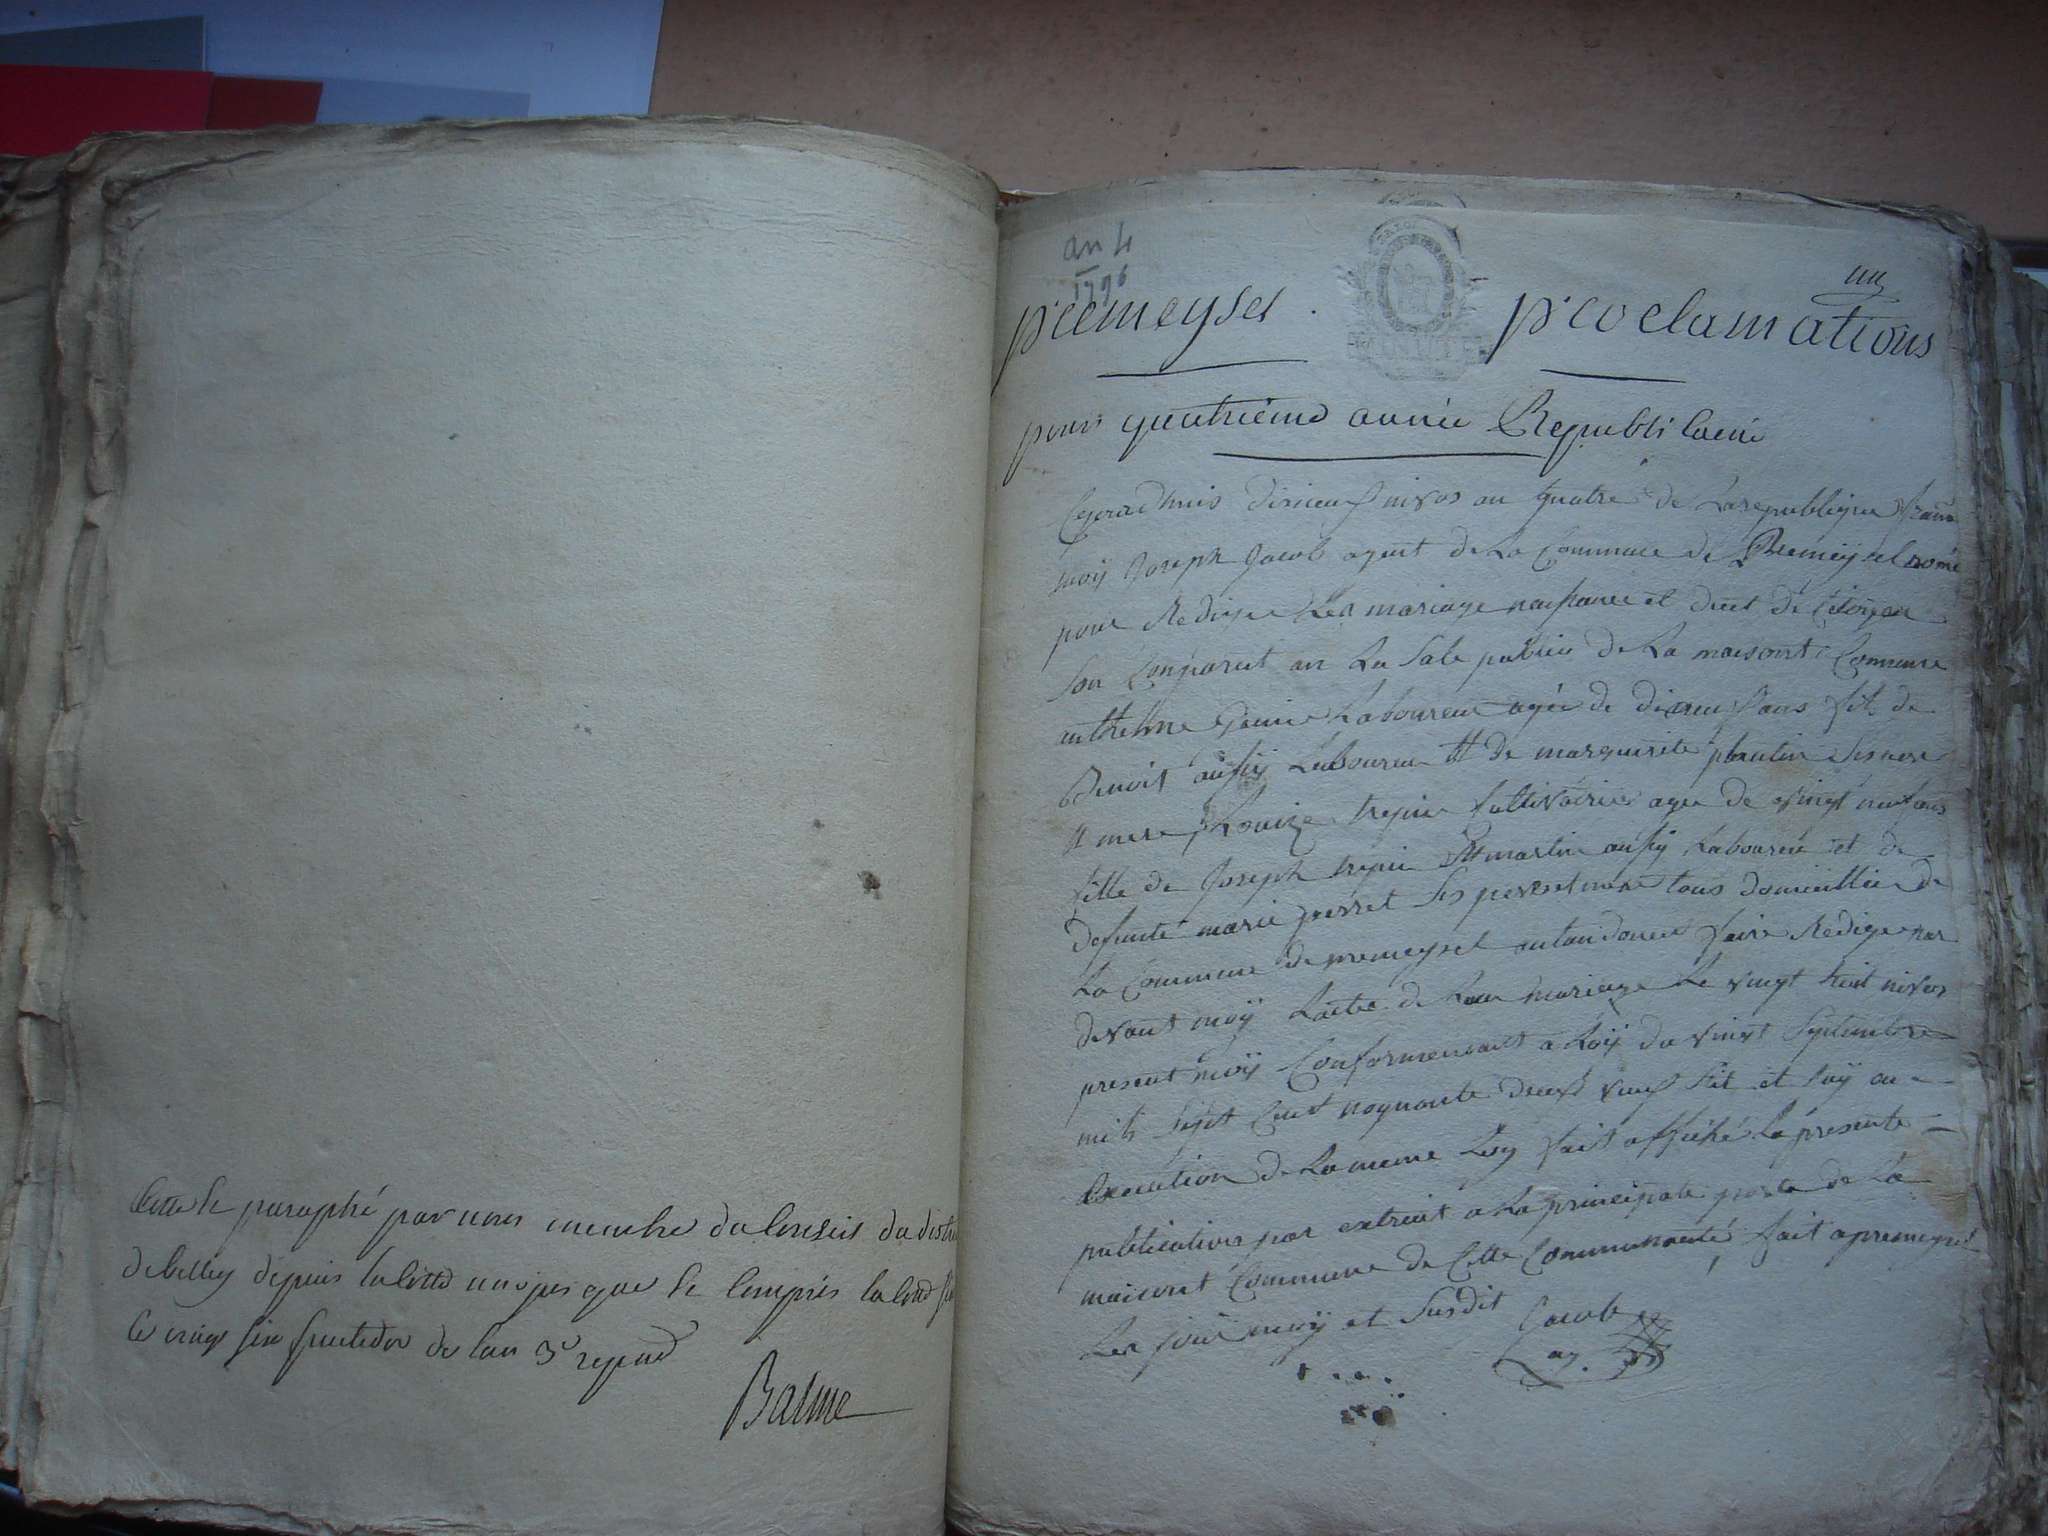 Cotté et paraphé par nous membre du Conseil du district
de belley depuis la Cotte un jusque et Compris la Cotte
Ce vingt six fructidor de lan 3e repub
Balme
an 4
1796
un
premeysel proclamations
pour quatrieme année Republicaine
Cejourdhuis disneuf nivos an quatre de La republique
moÿ Joseph Jacob agent de La Commune de Premeysel nomé
pour Redige Les mariage naissance et deces de Citoyen
Son Conparut an La Sale publics de La maisont Commune
anthelme Laboureur agée de disneuf ans fil de
Benoit aussy Laboureur et de marguerite plantin Ses pere
et mere Louize trepié Cultivatrice agee de vingt neuf ans
fille de Joseph trepié St martin aussy Laboureur et de
defunte marie perret Ses pere et mere tous domicillie de
La Commune de premeysel faire Rédige par
devant moÿ Lacte de Leur mariage Le vingt huit nivos
present moÿ Conformement a Loÿ du vingt Septembre
mils Sept Cent noynante deux et Suÿ an
Execution de La meme Loy fait affiché la présente
publication par extrait a La principale porte de La
maisont Commune de Cette Communauté fait a premeysel
Les jour moÿ et Susdit Jacob
ag.